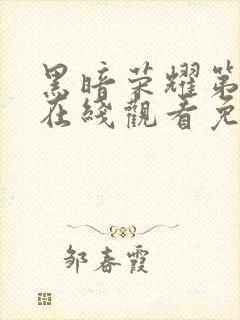 黑暗荣耀第
在线觀看免
邹春霞